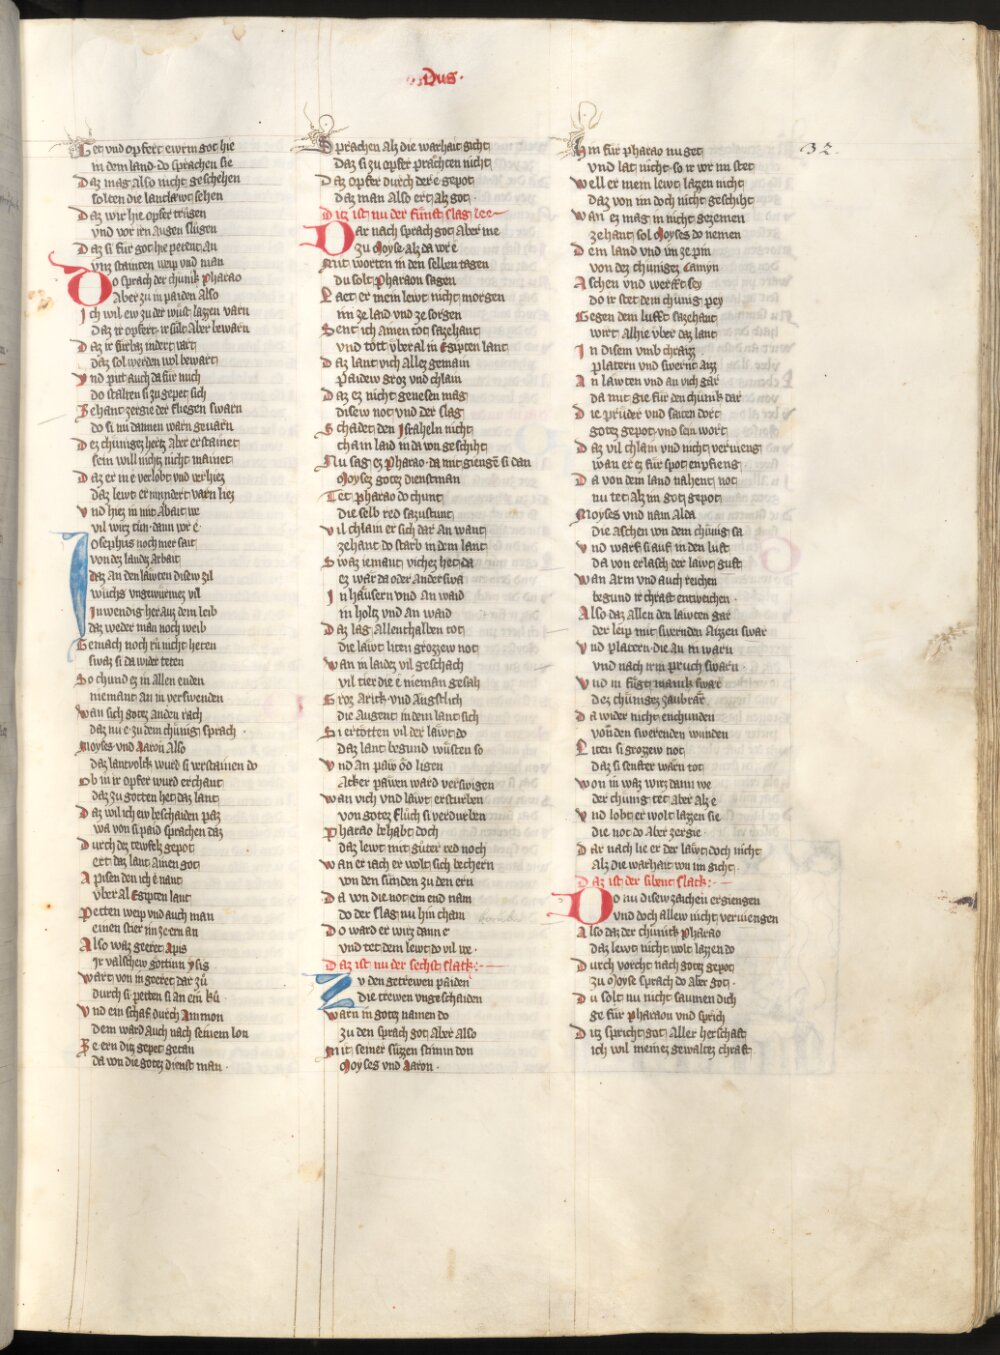 Dus·
32
Get vnd opfert ewrm got hie
in dem land do sprachen sie
Daz mag also nicht geschehen
solten die lantlæwt sehen
Daz wir hie opfer trügen
vnd vor irn augen slügen
Daz si für got hie petent an
vnz stainten weip vnd man
Do sprach der chunik pharao
Aber zu in paiden also
Ich wil ew zu der wüst lazen varn
daz ir opfert ir sült aber bewarn
Daz ir fürbaz indert vart
daz sol werden wol bewart
Vnd pittt auch da für mich
do stalten si zu gepet sich
Zehant zergie der fliegen swarn
do si nu dannen warn geuarn
Dez chuniges hertz aber erstainet
sein will nichtz nicht mainet
Daz er in e verlobt vnd verhiez
daz lewt er nindert varn liez
Vnd hiez in mit abait we
vil wirz tun dann vor e
Josephus noch mer sait
von dez landez arbait
daz an den læwten disew zil
wuchs vngewürmez vil
Inwendig her auz dem leib
daz weder man noch weib
Gemach noch rü nicht heten
swaz si da wider teten
So chund ez in allen enden
niemant an in verswenden
wan sich gotz anden rach
daz nu e zu dem chünig sprach
Moyses vnd Aaron also
daz lantvolck wurd si verstainen do
Ob in ir opfer wurd erchant
daz zu gotten het daz lant
Daz wil ich ew beschaiden paz
wa von si paid sprachen daz
Durch dez tewfels gepot
ert daz lant ainen got
Apisen den ich e nant
vber al Egipten lant
Petten weip vnd auch man
einen stier in ze ern an
Also waz geeret Apis
Ir valschew gottinn ysis
wart von in geeret dar zü
durch si petten si an ein kü·
Vnd ein schaf durch Ammon
dem ward auch nach seinem lon
Ze ern diz gepet getan
da von die gotz dienst man·
Sprachen alz die warhait gicht
Daz si zu opfer prachten nicht
Daz opfer durch der e gepot
daz man also ert alz got·
Diz ist nu der fünft slag
Dar nach sprach got aber me
zu Moyse alz da vor e
Mit worten in den selben tagen
du solt pharaon sagen
Laet er mein lewt nicht morgen
im ze laid vnd ze sorgen
Sent ich ainen tot sazehant
vnd tött vber al in Egipten lant
Daz lant vich allez gemain
paidew groz vnd chlain
Daz ez nicht genesen mag
disew not vnd der slag
Schadet den Israheln nicht
chain laid in da von geschiht
Nu sag ez pharao· da mit gieng si dan
Moysez gotz dienstman
Tet pharao do chunt
die selb red sazustunt
Vil chlain er sich dar an want
zehant do starb in dem lant
Swaz iemant vichez het da
ez wär da oder anderswa
In häusern vnd an waid
in holtz vnd an waid
Daz lag allenthalben tot
die läwt liten grozzew not
wan in landez vil geschach
vil tier die e nieman gesah
Groz Arick vnd Angstlich
die augent in dem lant sich
Si ertötten vil der läwt do
daz lant begund wüsten so
Vnd an paw öd ligen
acker pawen ward verswigen
wan vich vnd läwt ersturben
von gotz flüch si verdurben
Pharao behabt doch
daz lewt mit güter red noch
wan er iach er wolt sich bechern
von den sünden zu den ern
Da von die not ein end nam
do der slag nu hin cham
Do ward er wirz dann e
vnd tet dem lewt do vil we·
Daz ist nu der sechst slack:
Zv den getrewen paiden
die trewen vngeschaiden
warn in gotz namen do
zu den sprach got aber also
Mit seiner süzzen stimm don
Moyses vnd Aaron·
Hin für pharao nu get
vnd lat nicht so ir vor im stet
well er mein lewt lazen nicht
daz von im doch nicht geschiht
wan ez mag in nicht gezemen
zehant sol Moyses do nemen
Dem land vnd im ze pin
von dez chunigez camyn
Aschen vnd werfft sey
do ir stet dem chünig pey
Gegen dem lufft sazehant
wirt alhie vber daz lant
In disem vmb chraiz
platern vnd swernt aiz
An läwten vnd an vich gar
da mit gie für den chunik dar
Die prüder vnd saiten dort
gotez gepot vnd sein wort
Daz vil chlain vnd nicht verueng
wan er ez für spot enpfieng
Da von dem land nahent not
nu tet alz im got gepot
Moyses vnd nam alda
die aschen von dem chünig sa
Vnd warf si auf in den luft
da von erlasch der läwt guft
wan arm vnd auch reichen
begund ir chraft entweichen·
Also daz allen den läwten gar
der leip mit swernden aizzen swar
Vnd platern die an in warn
vnd nach irm pruch swarn·
Vnd in fügt manik swar
dez chünigez zaubrär
Da wider nicht enchunden
von den swerenden wunden
Liten si grozzew not
daz si senfter warn tot
won in waz wirz dann we
der chünig tet aber alz e
Vnd lobt er wolt lazzen sie
die not do aber zergie·
Dar nach lie er der läwt doch nicht
Alz die warhait von im gicht·
Daz ist der sibent slack:
Do nu disew zaichen ergiengen
vnd doch allew nicht verviengen
Also daz der chünik pharao
daz lewt nicht wolt lazzen do
Durch vorcht nach gotz gepot
zu Moyse sprach do aber got·
Du solt nu nicht saumen dich
ge für pharaon vnd sprich
Diz spricht got aller herschaft
ich wil meinez gewaltez chraft